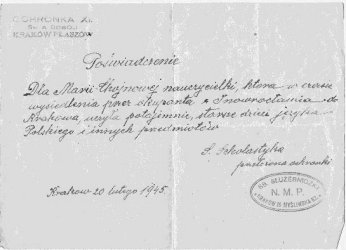 OCHRONKA XI.
KRAKÓW PŁASZÓW
Poświadczenie
Dla Marii Chojnowej nauczycielki, która w czasie
wysiedlenia przez okupanta z Inowrocławia do
Krakowa, uczyła potajemnie, starsze dzieci języka
Polskiego i innych przedmiotów
S. Scholastyka
przełożona ochronki
Krakow 20 lutego 1945.
SS. SŁUŻEBNICZKI
N. M. P.